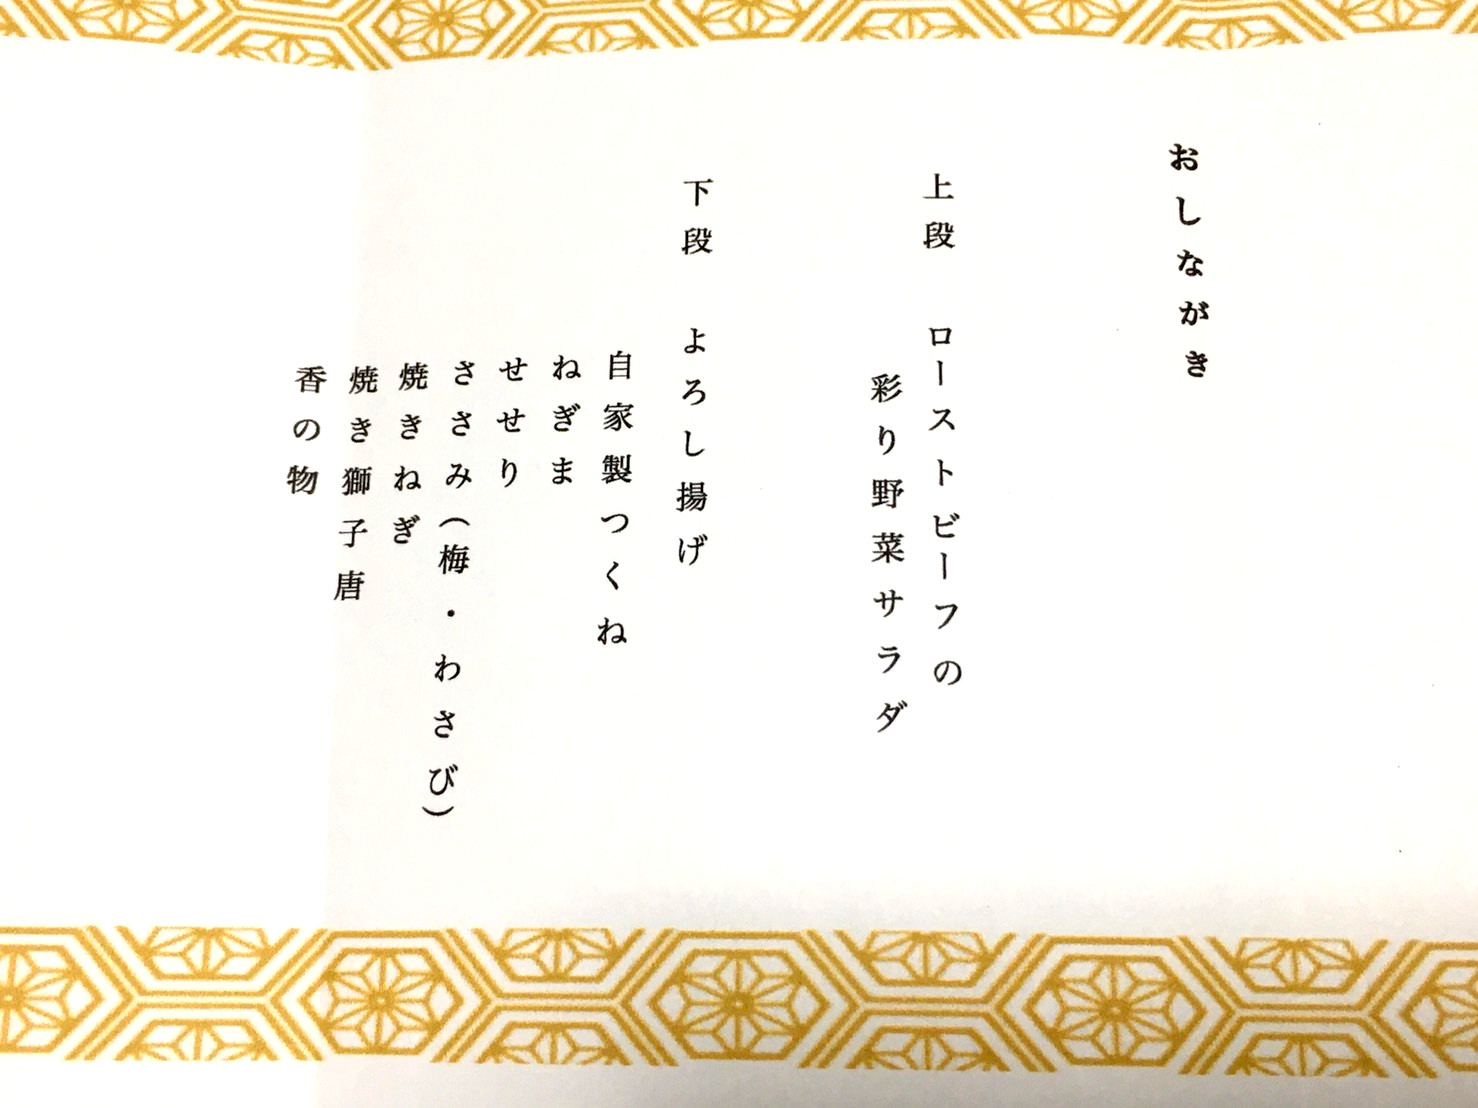 おしながき
上段　ローストビーフの
彩り野菜サラダ
下段　よろし揚げ
自家製つくね
ねぎま
せせり
ささみ（梅・わさび）
焼きねぎ
焼き獅子唐
香の物